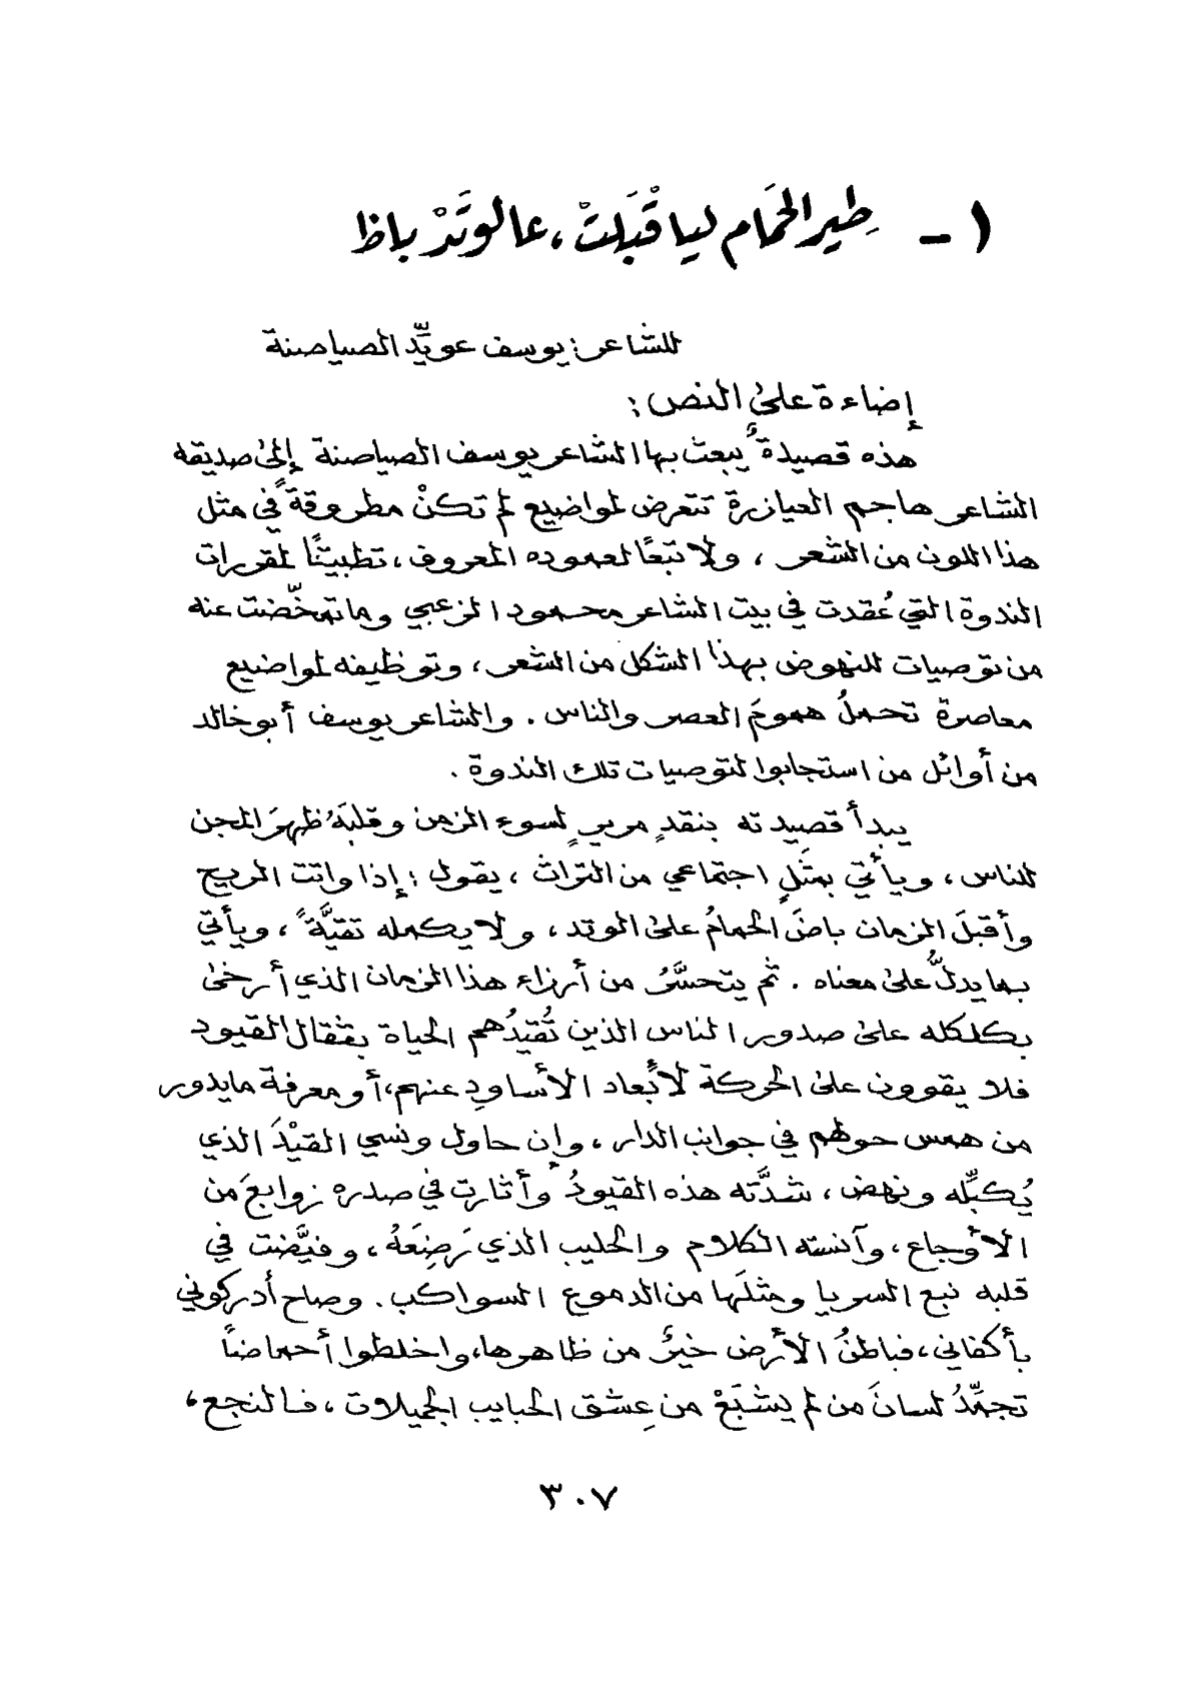 ١ - طِير الحَمام ليا قْبَلتْ، عالوَتَدْ باظ
للشاعر: يوسف عويِّد الصياصنة
إضاءة على النص:
هذه قصيدةٌ يبعث بها الشاعر يوسف الصياصنة إلى صديقه
الشاعر هاجم العيازرة تتعرض لمواضيع لم تكنْ مطروقةً في مثل
هذا اللون من الشعر، ولا تبعًا لعموده المعروف، تطبيقًا لمقررات
الندوة التي عُقدت في بيت الشاعر محمود الزعبي وما تمخّضت عنه
من توصيات للنهوض بهذا الشكل من الشعر، وتوظيفه لمواضيع
معاصرة تحملُ همومَ العصر والناس. والشاعر يوسف أبو خالد
من أوائل من استجابوا لتوصيات تلك الندوة.
يبدأ قصيدته بنقدٍ مريرٍ لسوء الزمن وقلبَهُ ظهرَ المجن
للناس، ويأتي بمثَلٍ اجتماعي من التراث، يقول: إذا واتت الريح
وأقبلَ الزمان باضَ الحمامُ على الوتد، ولا يكمله تقيَّةً، ويأتي
بما يدلُّ على معناه. ثم يتحسَّرُ من أرزاء هذا الزمان الذي أرخى
بكلكله على صدور الناس الذين تُقيدُهم الحياة بثقال القيود
فلا يقوون على الحركة لأبعاد الأساودِ عنهم، أو معرفة ما يدور
من همس حولهم في جوانب الدار، وإن حاول ونسي القيْدَ الذي
يُكبِّله ونهض، شدَّته هذه القيودُ وأثارت في صدره زوابعَ من
الأوجاع، وآنسته الكلام والحليب الذي رَضِعَهُ، وفيَّضت في
قلبه نبع السريا ومثلَها من الدموع السواكب. وصاح أدركوني
بأكفاني، فباطنُ الأرض خيرٌ من ظاهرها، واخلطوا أحماضاً
تجمِّدُ لسانَ من لم يشبَعْ من عِشق الحبايب الجميلات، فالنجع،
٣٠٧